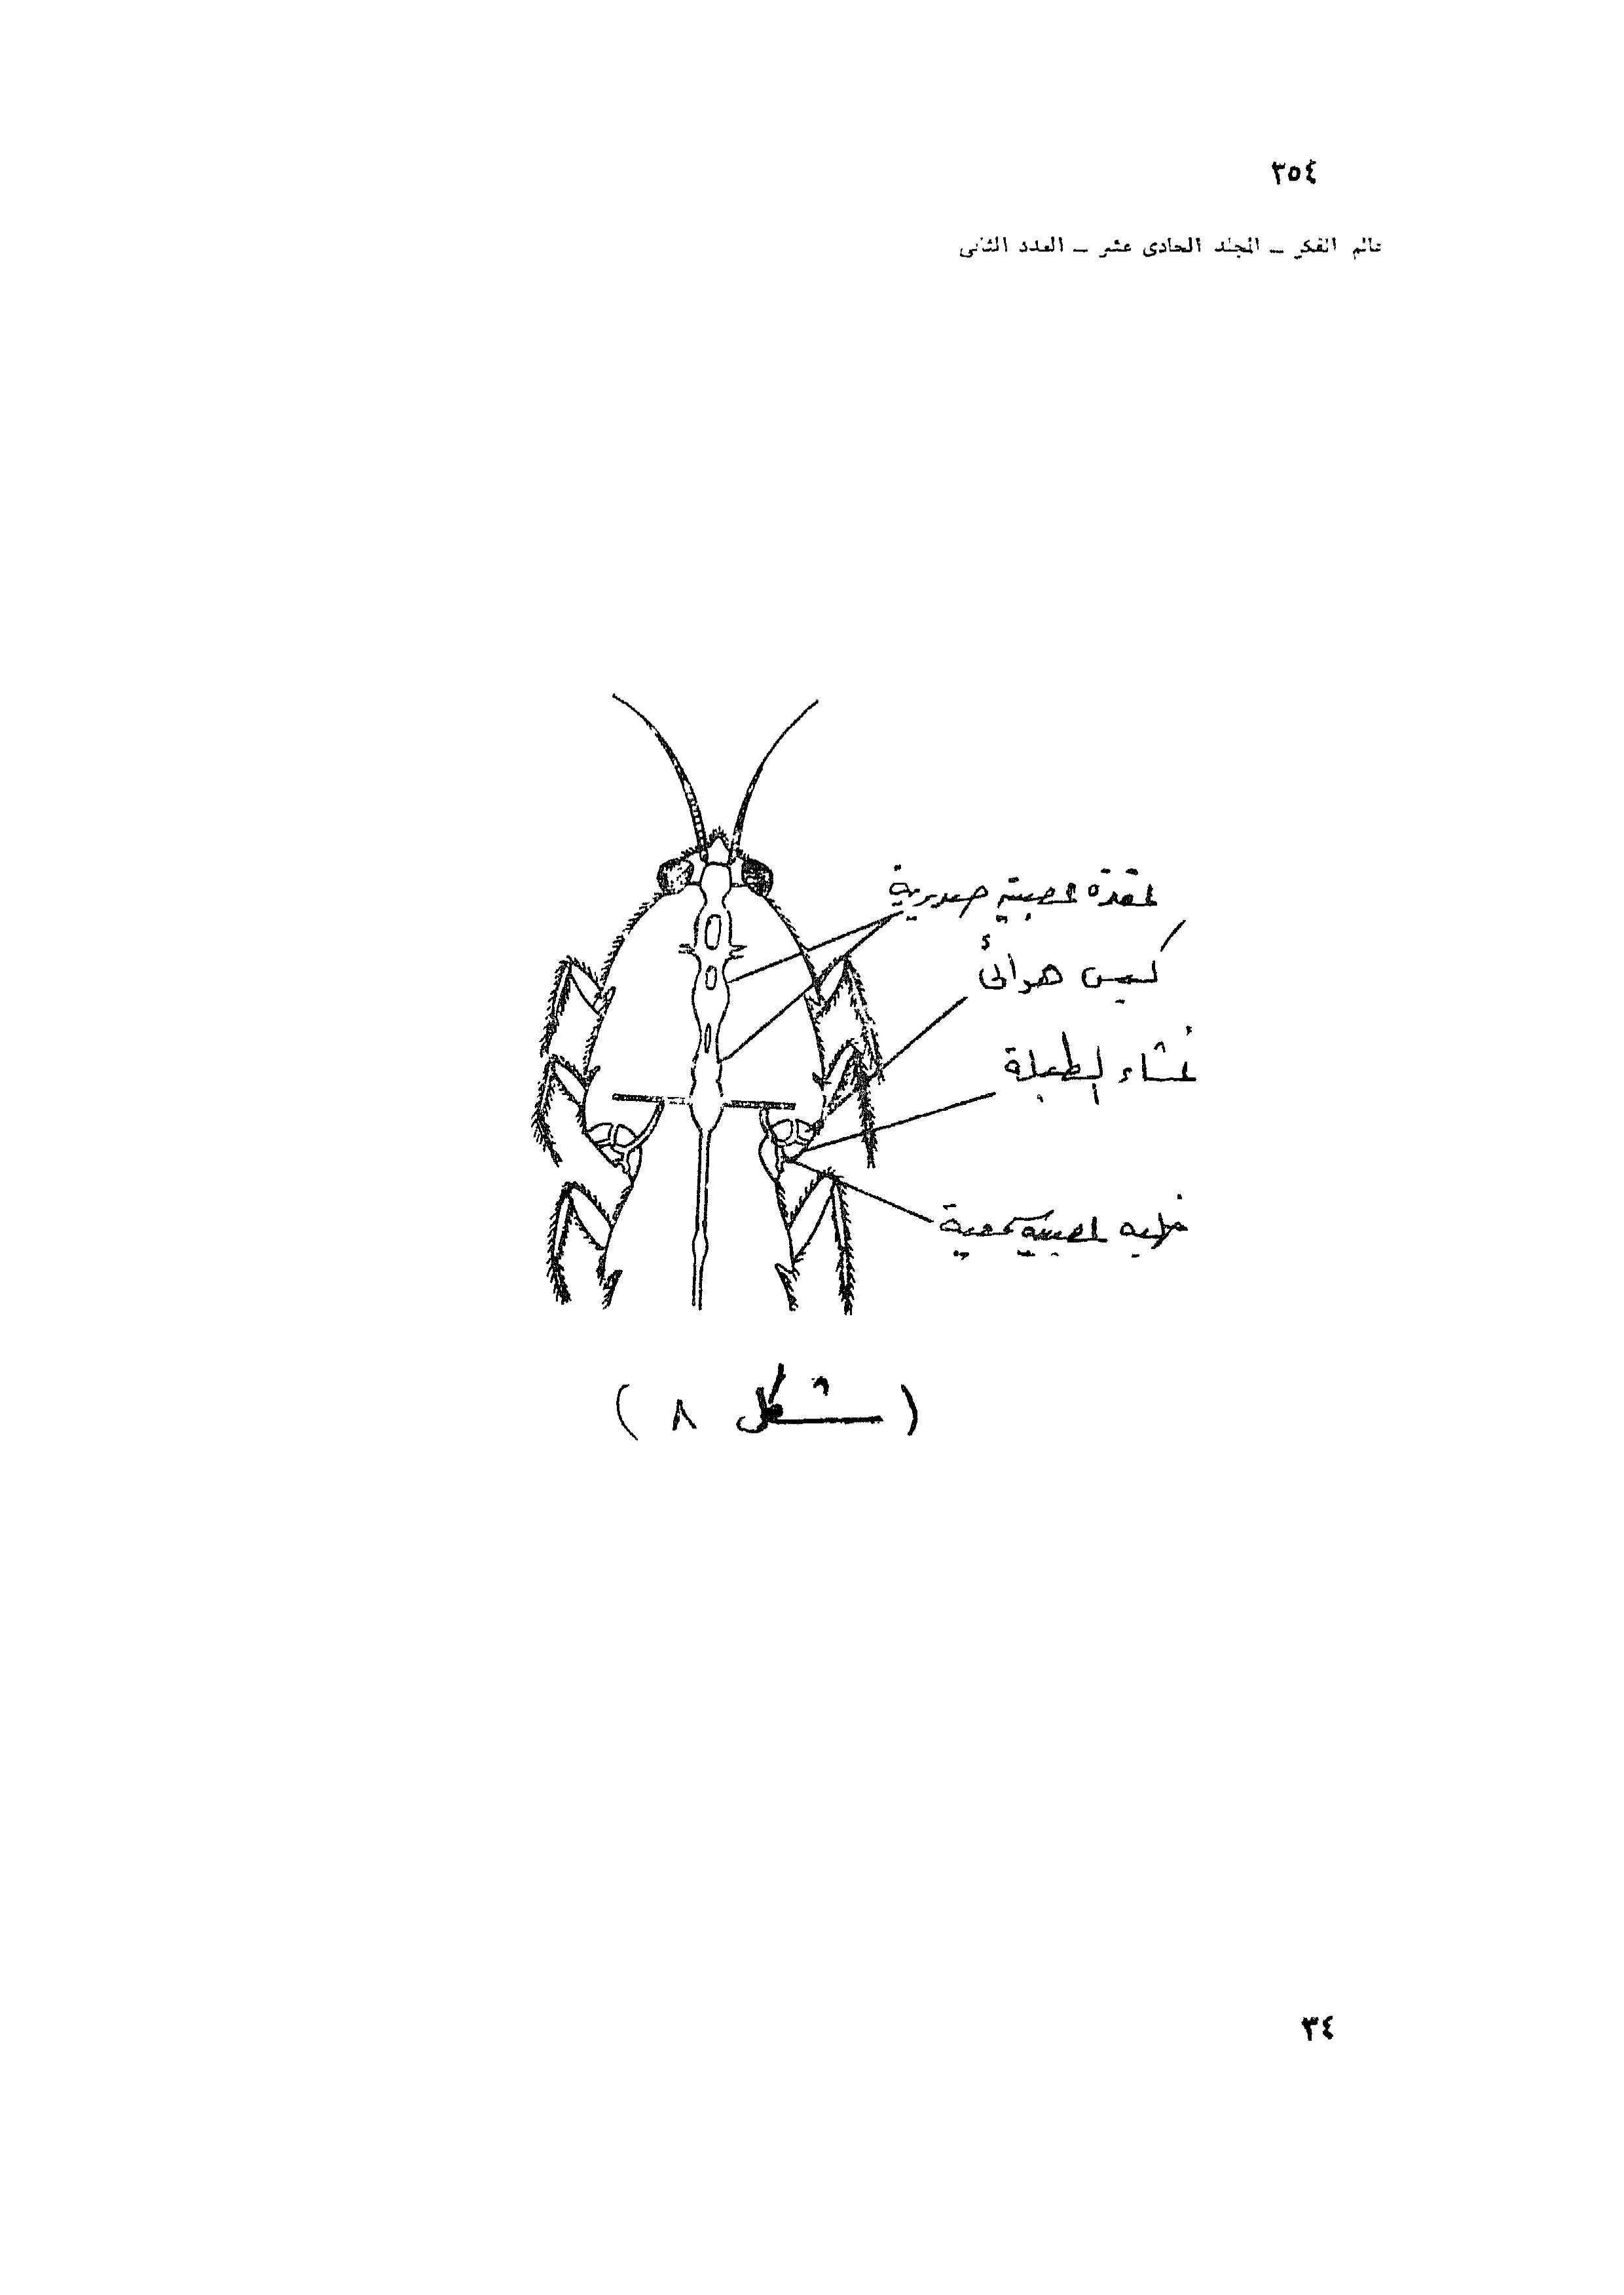 ٣٥٤
عالم الفكر ــ المجلد الحادى عشر ــ العدد الثانى
عقدة عصبية صدرية
كيس هوائى
غشاء الطبلة
خلية عصبية سمعية
( شكل ٨ )
٣٤